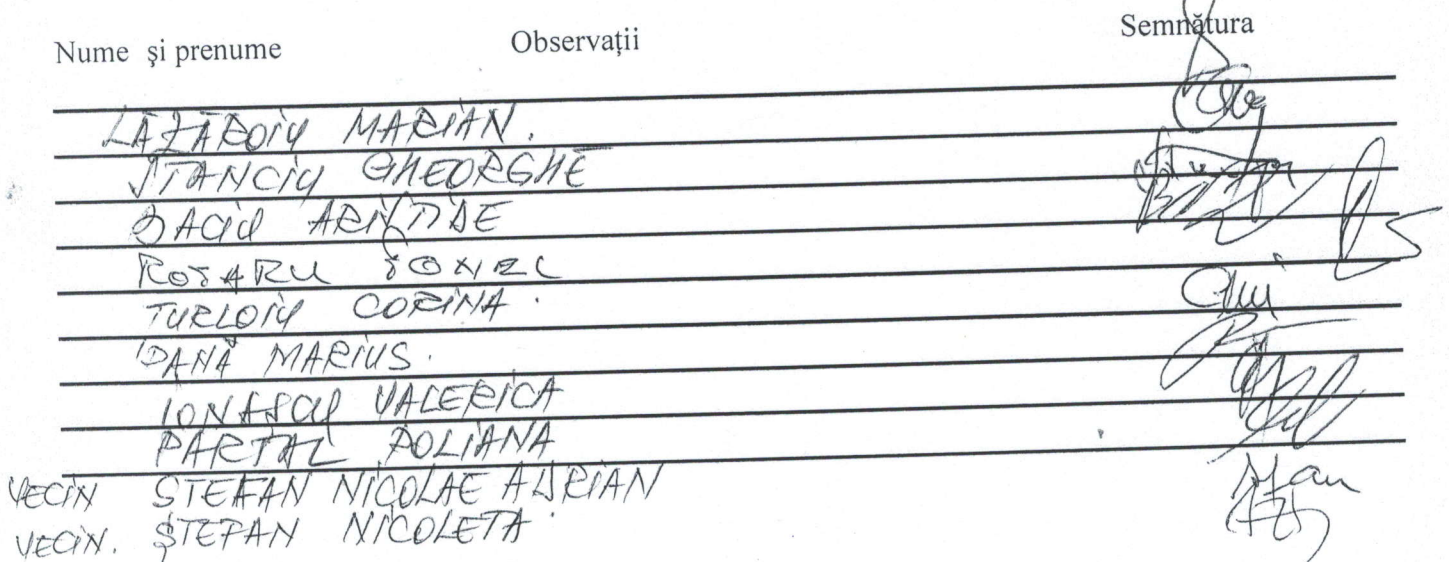 Nume și prenume Observații Semnătura
LĂZĂROIU MARIAN.
STANCIU GHEORGHE
BACIU ARISTIDE
ROȘARU IONEL
TURLOIU CORINA.
DANĂ MARIUS.
IONAȘCU VALERICA
PARTAL POLIANA
VECIN ȘTEFAN NICOLAE ADRIAN
VECIN. ȘTEFAN NICOLETA